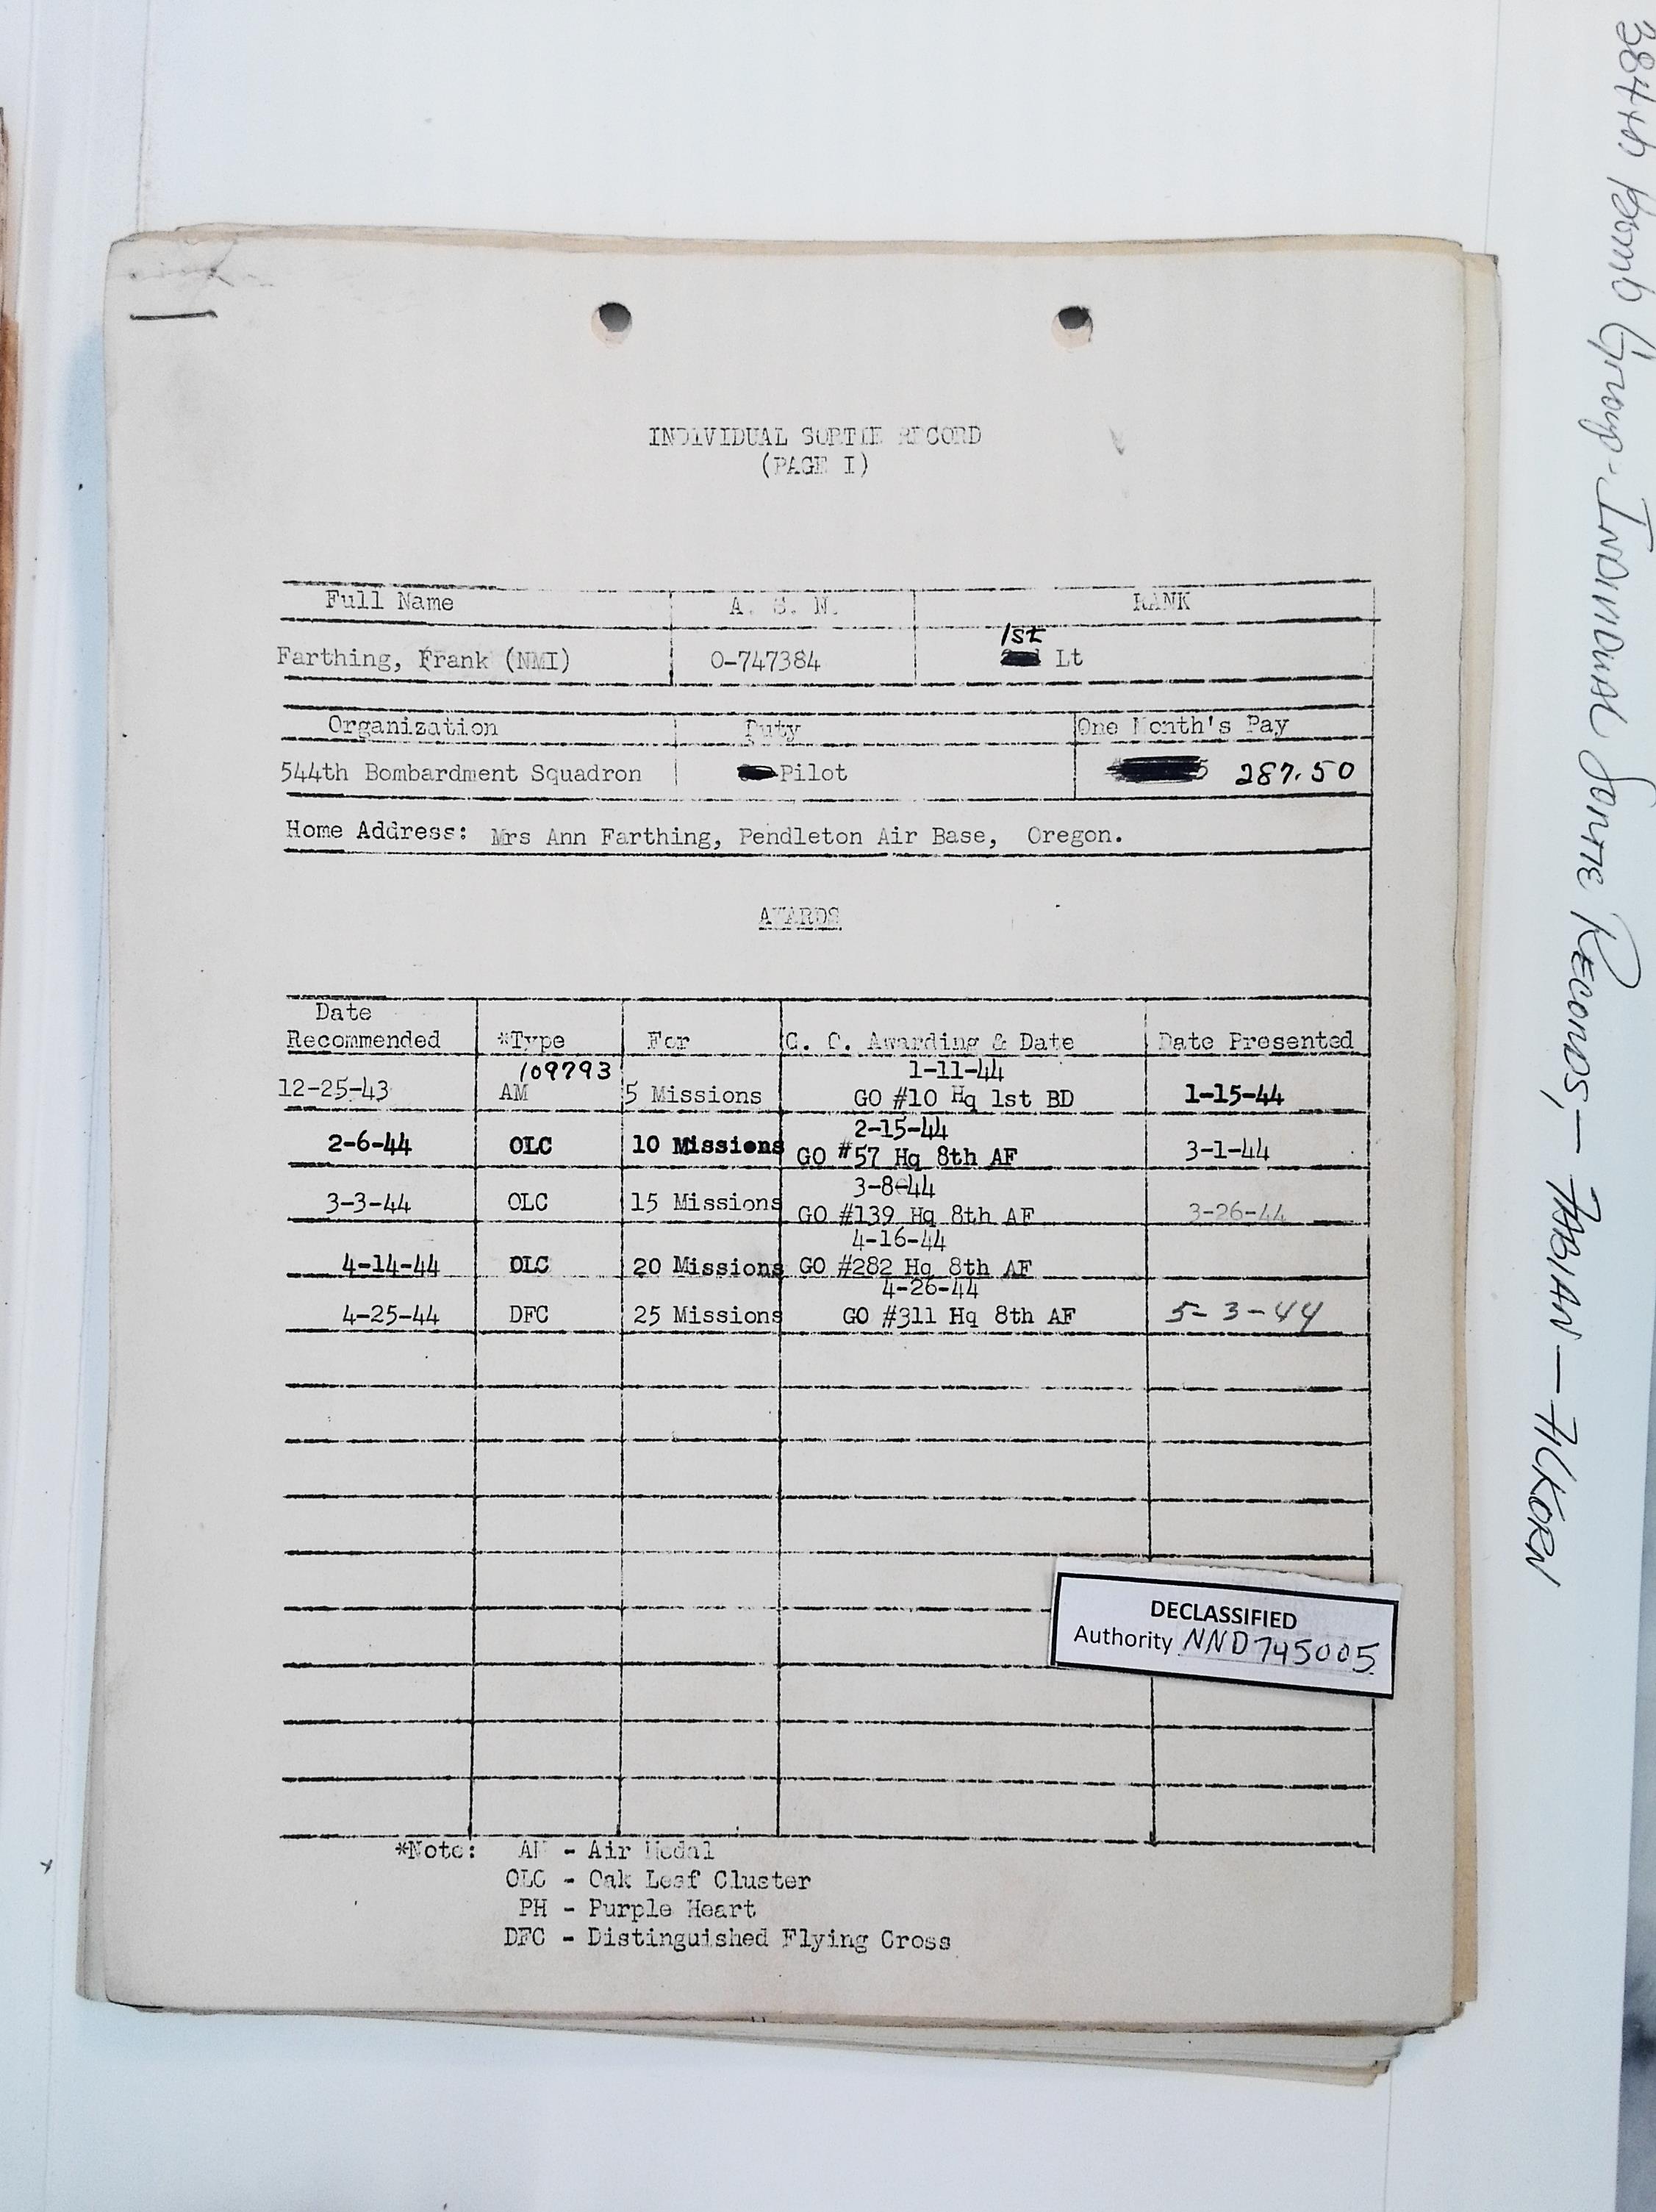 INDIVIDUAL SORTIE RECORD
(PAGE I)
Full Name A. S. N. RANK
1st
Farthing, Frank (NMI) O-747384 Lt
Organization Duty One Month's Pay
544th Bombardment Squadron Pilot 287.50
Home Address: Mrs Ann Farthing, Pendleton Air Base, Oregon.
AWARDS
Date
Recommended *Type For G. O. Awarding & Date Date Presented
109793 1-11-44
12-25-43 AM 5 Missions GO #10 Hq 1st BD 1-15-44
2-15-44
2-6-44 OLC 10 Missions GO #57 Hq 8th AF 3-1-44
3-8-44
3-3-44 OLC 15 Missions GO #139 Hq 8th AF 3-26-44
4-16-44
4-14-44 OLC 20 Missions GO #282 Hq 8th AF
4-26-44
4-25-44 DFC 25 Missions GO #311 Hq 8th AF 5-3-44
DECLASSIFIED
Authority NND745005
*Note: AM - Air Medal
OLC - Oak Leaf Cluster
PH - Purple Heart
DFC - Distinguished Flying Cross
384th Bomb Group - Individual Sortie Records, - FABIAN - FICKORN